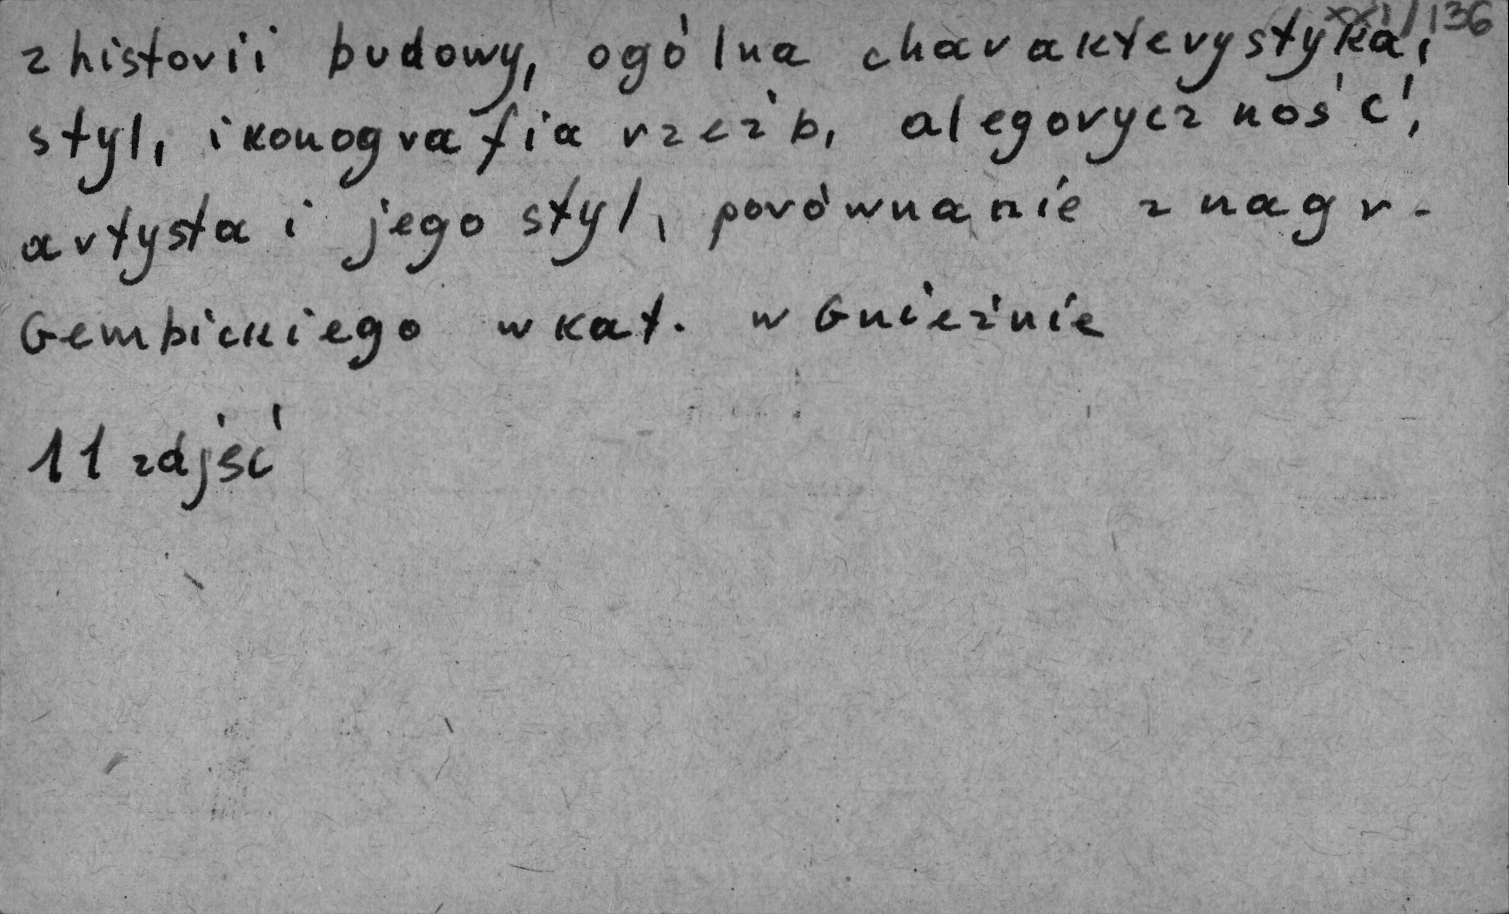 XXI/136
z historii budowy, ogólna charakterystyka,
styl, ikonografia rzeźb, alegoryczność,
artysta i jego styl, porównanie z nagr.
Gembickiego w kat. w Gnieźnie
11 zdjęć